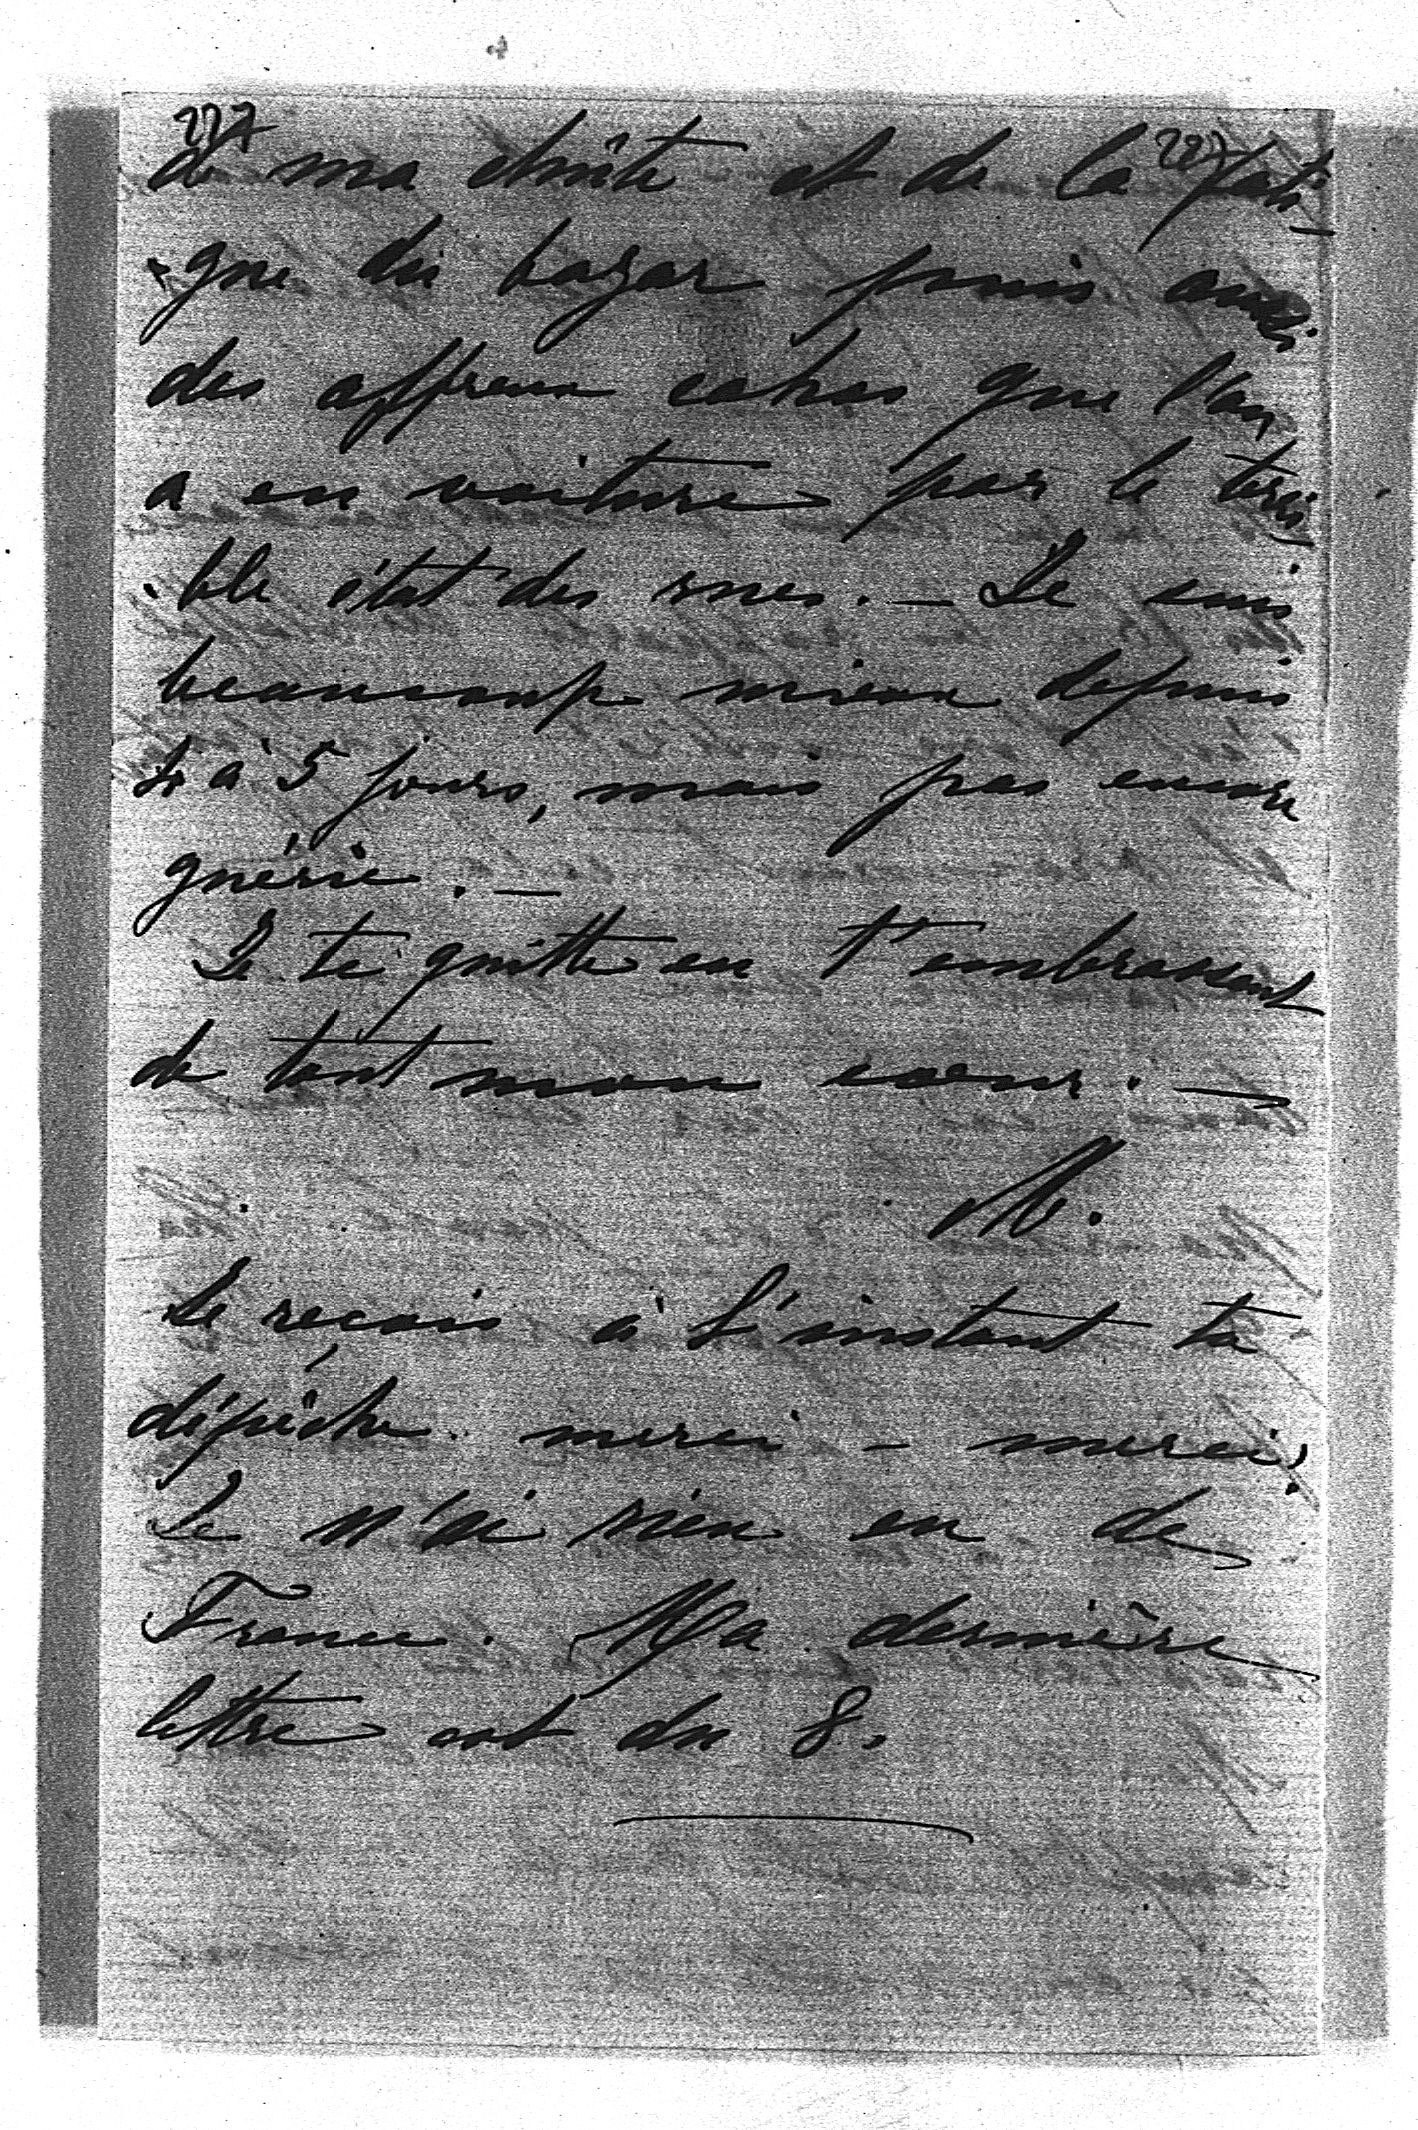 227 227
de ma chûte et de la fati-
-gue du bazar puis aussi
des affreux cahos que l'on
a en voiture par le terri-
-ble état des rues. — Je suis
beaucoup mieux depuis
4 à 5 jours, mais pas encore
guérie. —
Je te quitte en t'embrassant
de tout mon cœur. —
M.
Je reçois à l'instant ta
dépêche merci - merci.
Je n'ai rien eu de
France. Ma dernière
lettre est du 8.